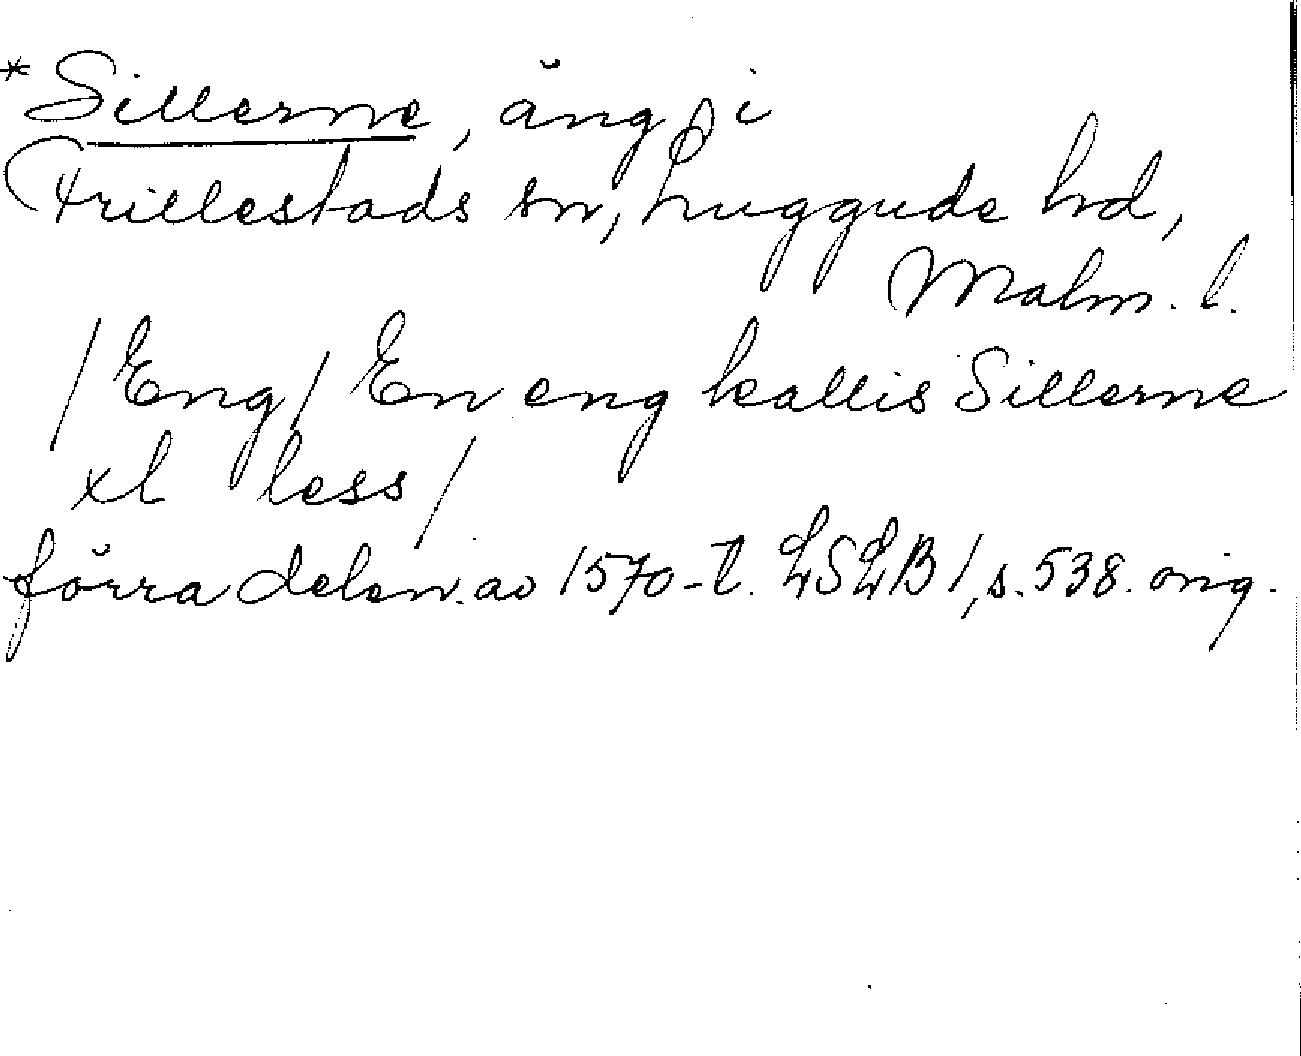 *Sillerne, äng, i
Frillestads sn, Luggude hd,
Malm. l.
/Eng/ En eng kallis Sillerne
xl less/
förra delen. av 1570-t. LSLB 1, s. 538. orig.